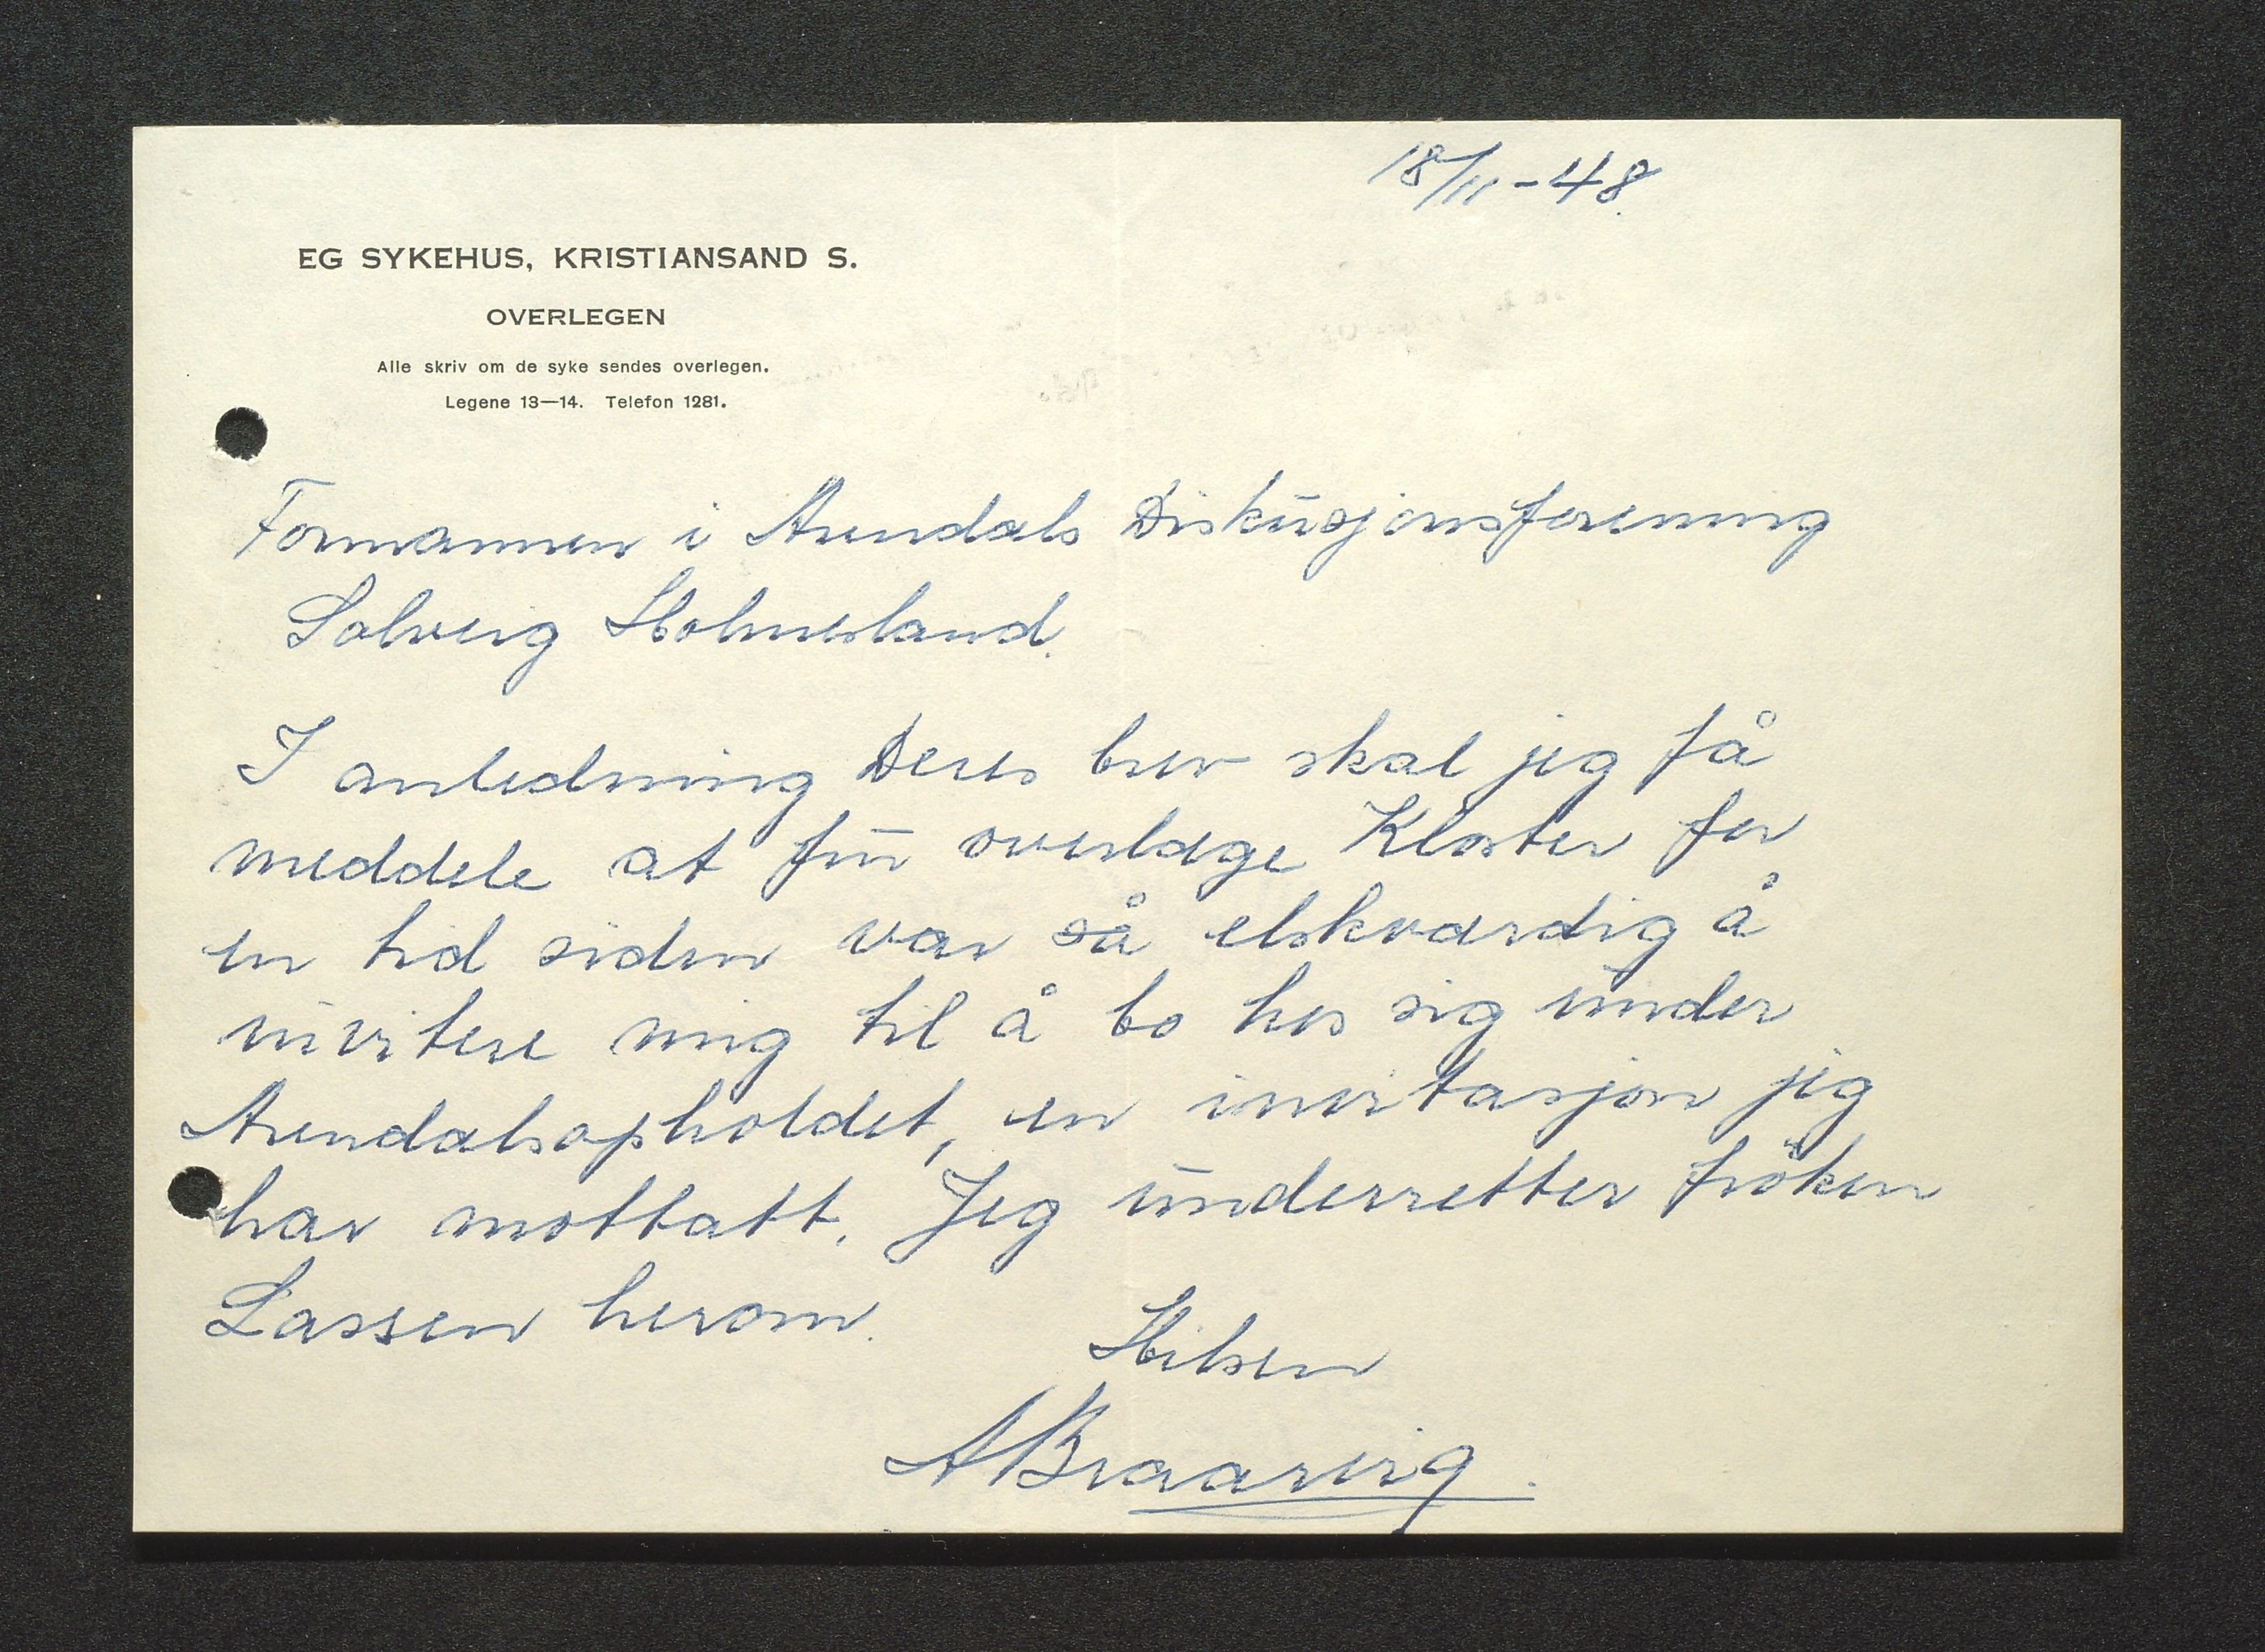 18/11-48.
EG SYKEHUS, KRISTIANSAND S.
OVERLEGEN
Alle skriv om de syke sendes overlegen.
Legene 13—14. Telefon 1281.
Formannen i Arendals Diskusjonsforening
Solveig Holmesland.
I anledning Deres brev skal jeg få
meddele at fru overlæge Kloster for
en tid siden var så elskværdig å
invitere mig til å bo hos sig under
Arendalsopholdet, en invitasjon jeg
har mottatt. Jeg underretter fröken
Lassen herom.
Hilsen
A Braarvig.